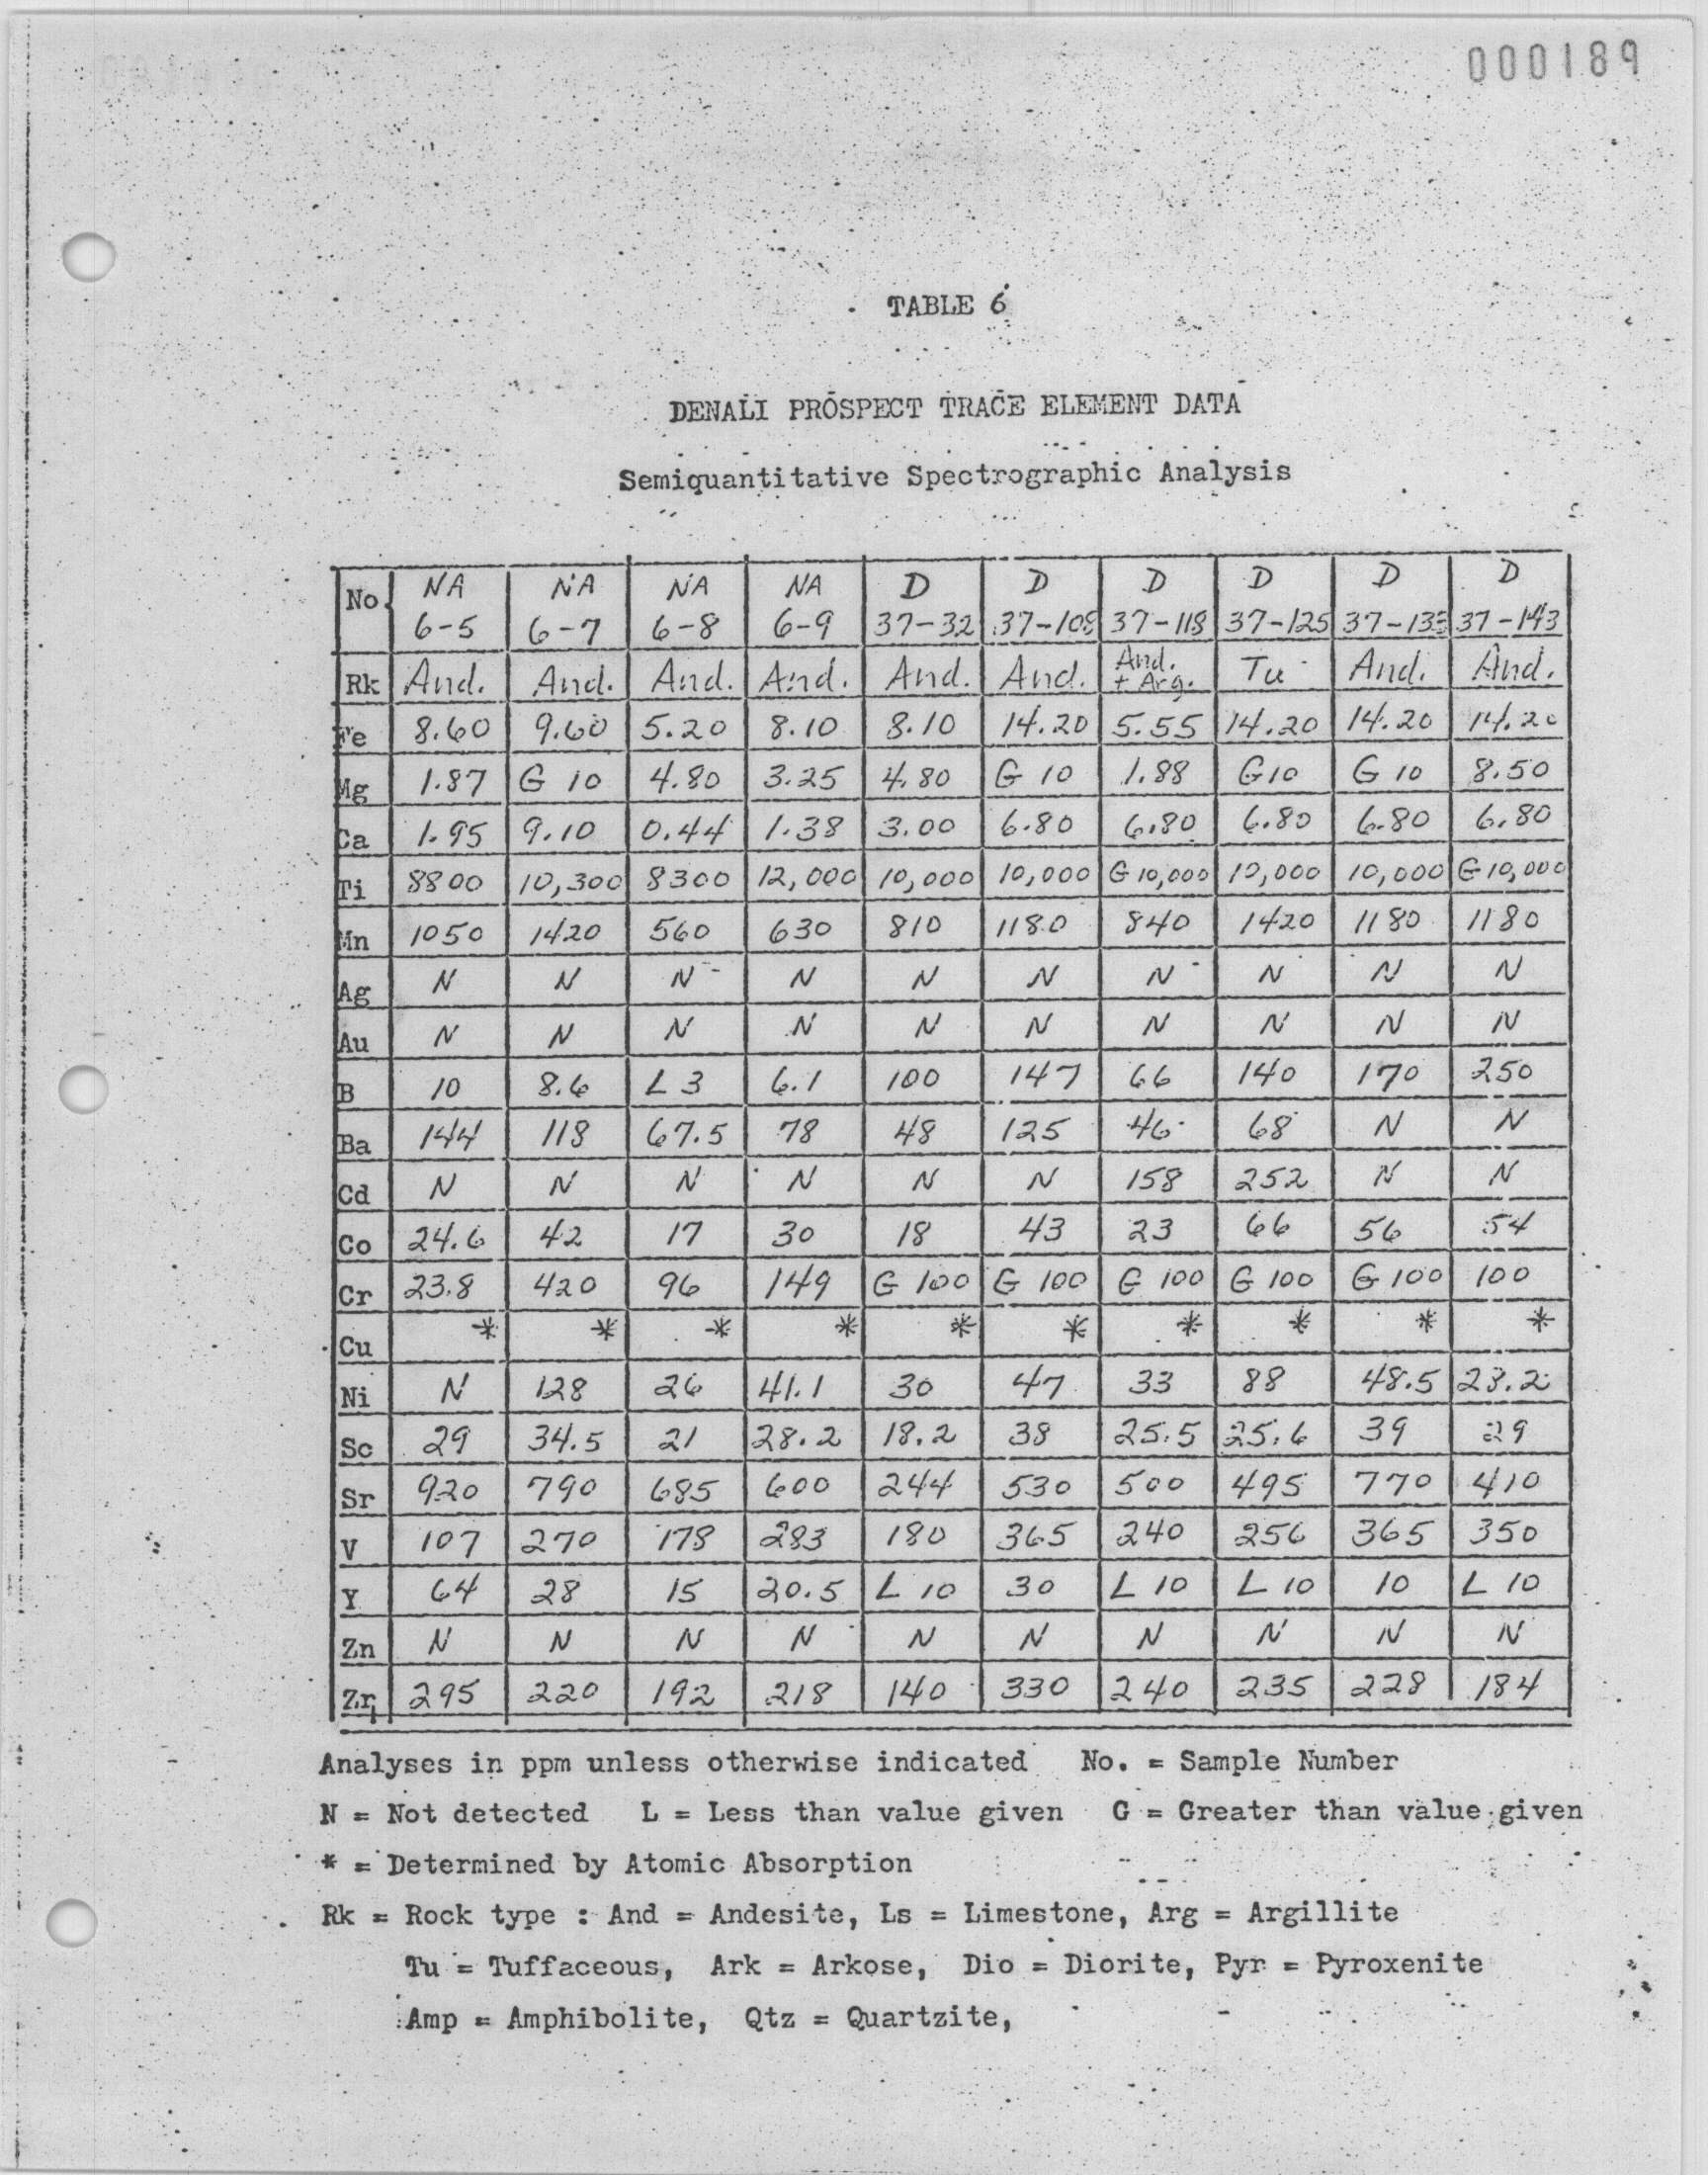 000189
TABLE 6
DENALI PROSPECT TRACE ELEMENT DATA
Semiquantitative Spectrographic Analysis
No. NA NA NA NA D D D D D D
6-5 6-7 6-8 6-9 37-32 37-108 37-118 37-125 37-133 37-143
Rk And. And. And. And. And. And. And. + Arg. Tu And. And.
Fe 8.60 9.60 5.20 8.10 8.10 14.20 5.55 14.20 14.20 14.20
Mg 1.87 G 10 4.80 3.25 4.80 G 10 1.88 G10 G 10 8.50
Ca 1.95 9.10 0.44 1.38 3.00 6.80 6.80 6.80 6.80 6.80
Ti 8800 10,300 8300 12,000 10,000 10,000 G 10,000 10,000 10,000 G 10,000
Mn 1050 1420 560 630 810 1180 840 1420 1180 1180
Ag N N N N N N N N N N
Au N N N N N N N N N N
B 10 8.6 L 3 6.1 100 147 66 140 170 250
Ba 144 118 67.5 78 48 125 46 68 N N
Cd N N N N N N 158 252 N N
Co 24.6 42 17 30 18 43 23 66 56 54
Cr 23.8 420 96 149 G 100 G 100 G 100 G 100 G 100 100
Cu * * * * * * * * * *
Ni N 128 26 41.1 30 47 33 88 48.5 23.2
Sc 29 34.5 21 28.2 18.2 38 25.5 25.6 39 29
Sr 920 790 685 600 244 530 500 495 770 410
V 107 270 178 283 180 365 240 256 365 350
Y 64 28 15 20.5 L 10 30 L 10 L 10 10 L 10
Zn N N N N N N N N N N
Zr 295 220 192 218 140 330 240 235 228 184
Analyses in ppm unless otherwise indicated No. = Sample Number
N = Not detected L = Less than value given G = Greater than value given
* = Determined by Atomic Absorption
Rk = Rock type : And = Andesite, Ls = Limestone, Arg = Argillite
Tu = Tuffaceous, Ark = Arkose, Dio = Diorite, Pyr = Pyroxenite
Amp = Amphibolite, Qtz = Quartzite,